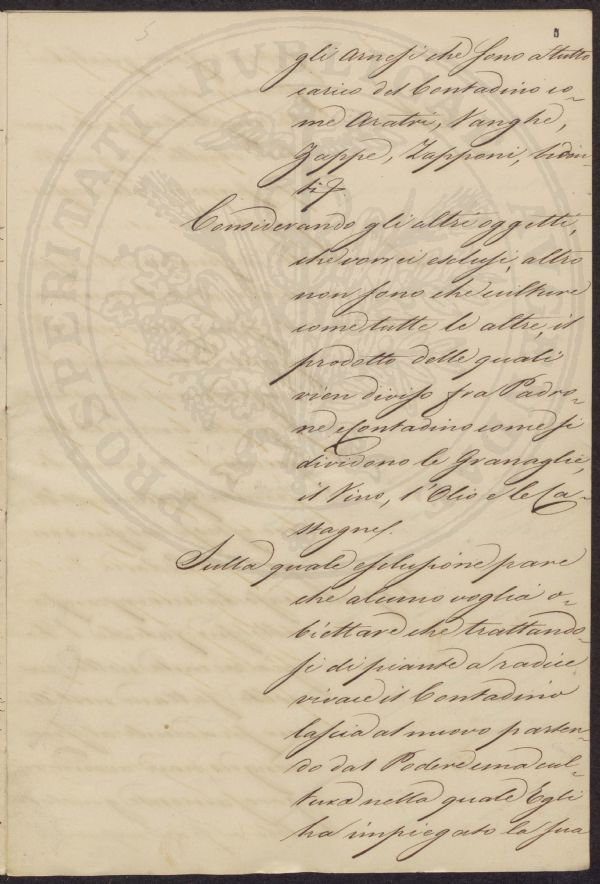 5
gli Arnesi che sono a tutto
carico del Contadino co-
me Aratri, Vanghe,
Zappe, Zapponi, biden-
ti.
Considerando gli altri oggetti,
che vorrei esclusi, altro
non sono che culture
come tutte le altre, il
prodotto delle quali
vien diviso fra Padro-
ne e Contadino come si
dividono le Granaglie,
il Vino, l'Olio e le Ca-
stagne.
Sulla quale esclusione pare
che alcuno voglia o-
biettare che trattando-
si di piante a radice
vivace il Contadino
lascia al nuovo parten-
do dal Podere una cul-
tura nella quale Egli
ha impiegato la sua
PROSPERITATI PVBLICAE AV